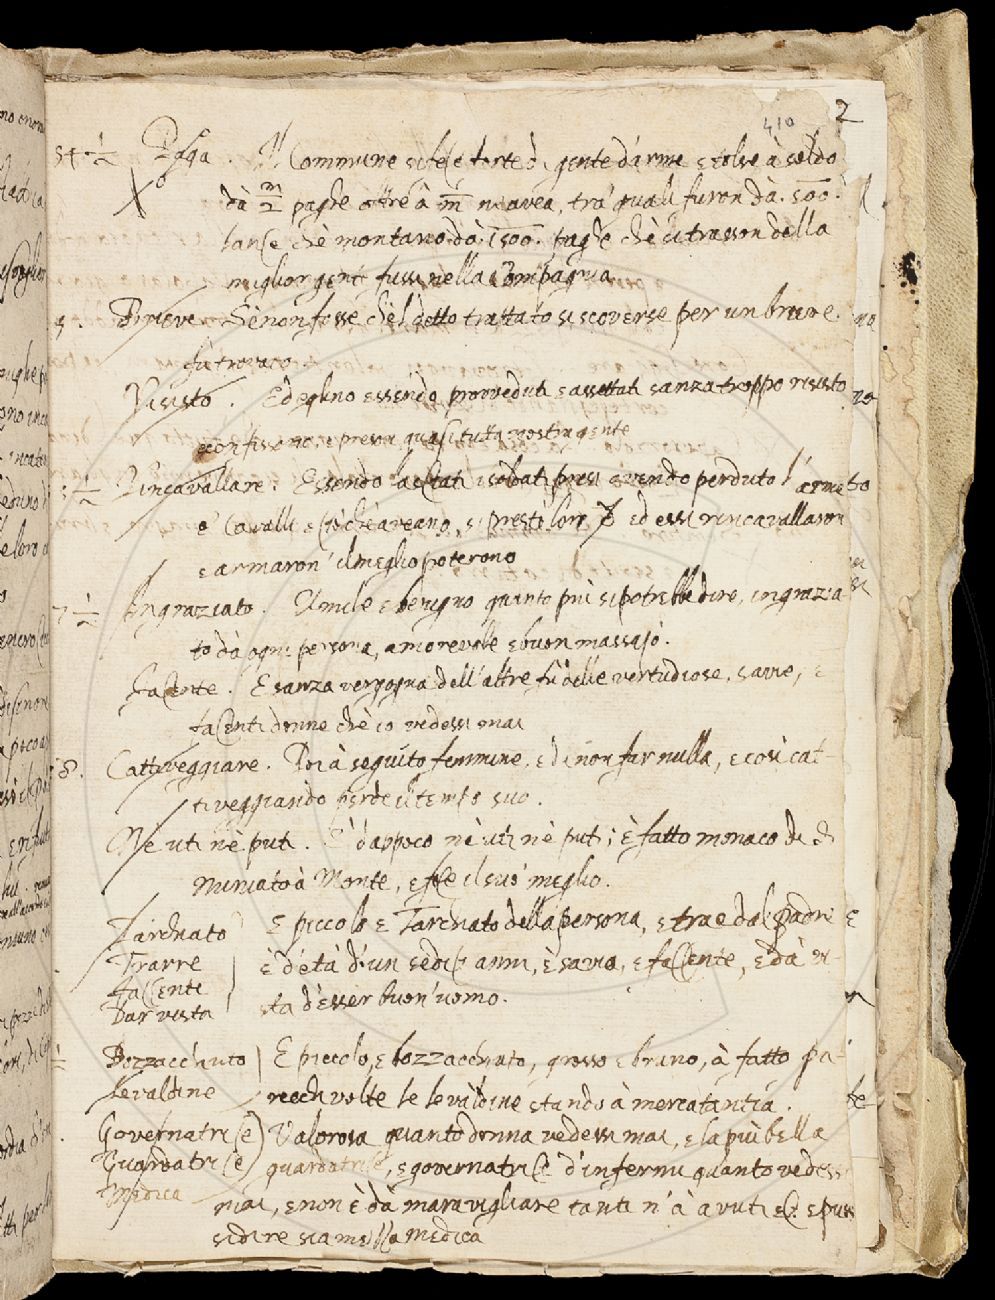 410 2
54 ½ Paga. Il Commune si fece forte di gente d'arme e tolse à soldo
dà 2 paghe oltre à n'avea, tra quali furon dà .500.
lance chè montano dà .1500. paghe chè si trasson della
miglior gente fusse nella Compagnia
Brieve. Sè non fosse chè l detto trattato si scoverse per un brieve
fù trovato
Visisto. Ed eglino essendo provveduti e assettati sanza troppo resisto
sconfissono, e preson quasi tutta nostra gente
Rincavallare. Essendo lasciati i soldati presi avendo perduto l'arme
e' Cavalli e ciò chè aveano, si prestò loro ed essi rincavallaron
e armaron' il meglio poterono
7 ½ Ingraziato. Umile e benigno quanto più si potrebbe dire, ingrazia-
to dà ogni persona, amorevole e buon massajo.
Facente. E sanza vergogna dell'altre fù delle vertudiose, savie, e
facenti donne chè io vedessi mai
8. Cattiveggiare. Poi à seguito femmine, e di non far nulla, e così cat-
tiveggiando perde il tempo suo.
Ne uti nè puti. E' dappoco nè uti nè puti; è fatto monaco di S
Miniato à Monte, e fece il suo meglio.
Tarchiato E piccolo e Tarchiato della persona, e trae dal Padre
Trarre è d'età d'un sedici anni, è savio, e facente, e dà vi-
facente sta d'esser buon'uomo.
Dar vista
Bozzacchiuto E piccolo, e bozzacchiuto, grosso e bruno, à fatto pa-
Levaldine recchi volte le levaldine stando à mercatantia.
Governatrice Valorosa quanto donna vedessi mai, e la più bella
Guardatrice guardatrice, e governatrice d'infermi quanto vedessi
Medica mai, e non è dà maravigliare tanti n'à avuti ec. e puossi
si dire sia mezza medica